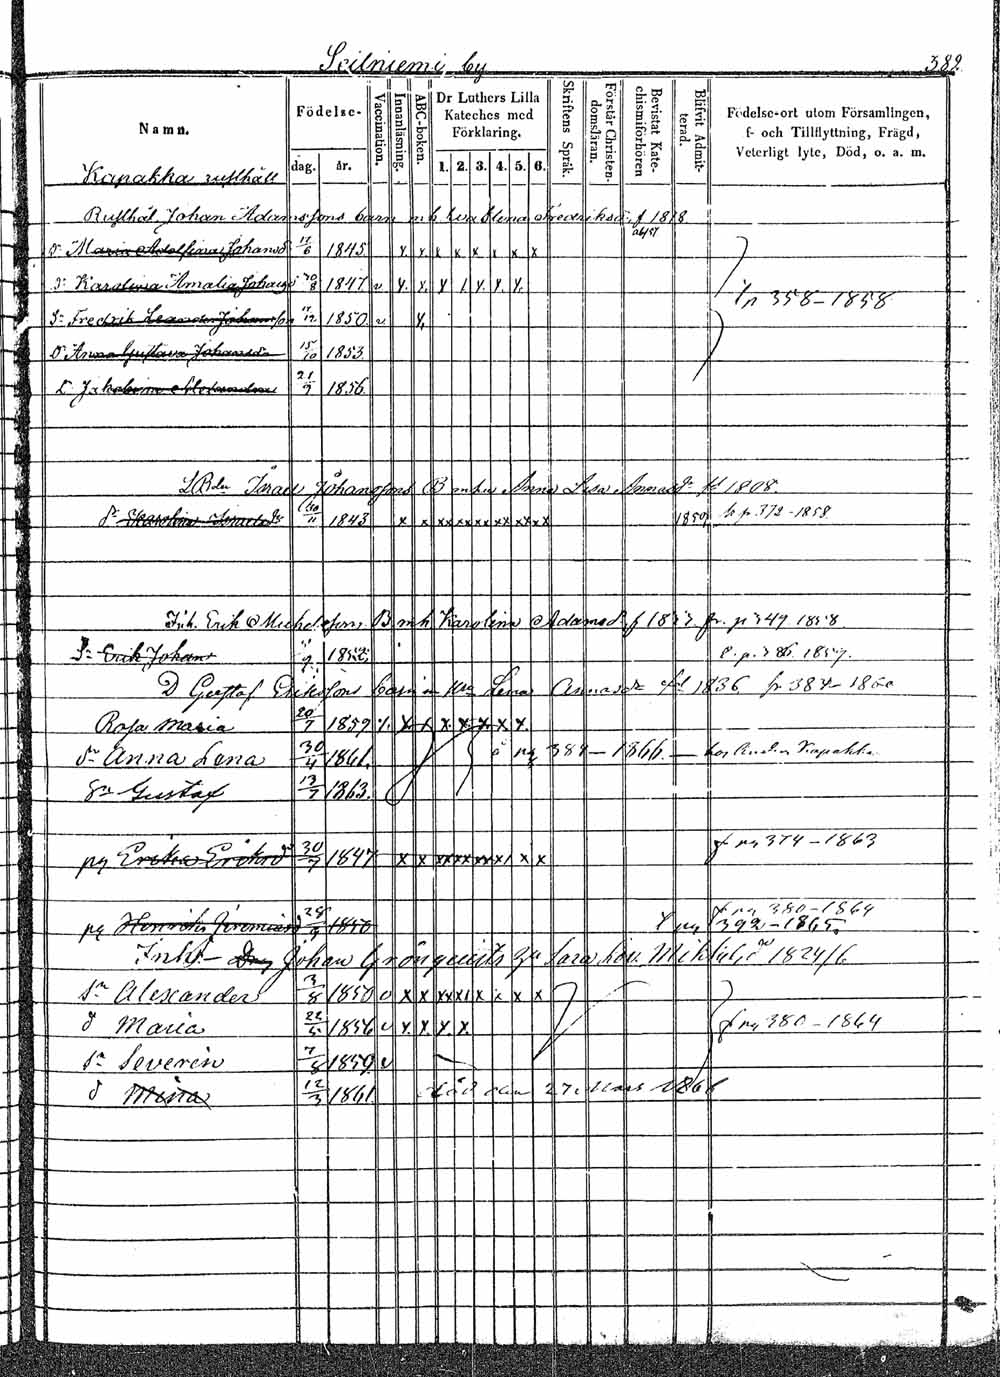 Seilniemi by 389.
Namn.
Födelse-
dag. år.
Vaccination.
Innanläsning.
ABC-boken.
Dr Luthers Lilla
Kateches med
Förklaring.
1. 2. 3. 4. 5. 6.
Skriftens Språk.
Förstår Christen-
domsläran.
Bevistat Kate-
chismiförhören
Blifvit Admit-
terad.
Födelse-ort utom Församlingen,
f- och Tillflyttning, Frägd,
Veterligt lyte, Död, o. a. m.
Kapakka rusthåll
Rusthål. Johan Adamssons barn m h Eva Elena Fredriksd. f 1818
Dr Maria Adolfiana Johansd 11/6 1845 x x x x x x x x
Dr Karolina Amalia Johansd 20/8 1847 v x. x. x 1 x. x. x. f p 358-1858
Sn Fredrik Leander Johansson 11/12 1850 v x
Dr Anna Gustava Johansdr 15/10 1853
Dr Jakobina Alexandra 21/9 1856.
Israel Johanssons B m h Anna Lisa Annasdr fd 1808.
dr Karolina Israelsdr 10/11 1843 x x xx xx xx xx xx xx 1859 h p. 372-1858.
Inh. Erik Michelssons B m h Karolina Adamsd. f 18 fr. p 349 1858
Sn Erik Johan 1857.
D Gustaf Erikssons barn m h Lena Annasdr fd 1836 fr 384-1860
Rosa Maria 20/7 1859 x x x x x x x
dr Anna Lena 30/4 1861. å pg 384-1866.- hos Kapakka
Sn Gustaf 13/7 1863.
pg Erika Eriksd 30/7 1847 x x xx xx xx x/ x x f pg 374-1863
pg Henriks Jeremiasd 28/9 1850 f pg 380-1864
f pg 392-1865.
Inh- Johan Grönqvists Sara Lov. Mikkelsd 1824/6
Sn Alexander 3/8 1850 v x x xx x x x x
d Maria 22/5 1856 v x x x x f pg 380-1864
Sn Severin 7/8 1859 v
d Mina 12/3 1861 död den 27 Mars 1866